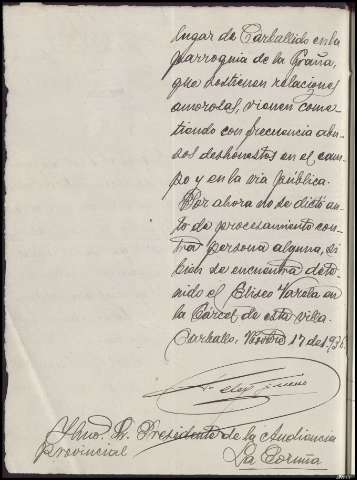 lugar de Carballido en la
parroquia de la Graña,
que sostienen relaciones
amorosas, vienen come-
tiendo con frecuencia abu-
sos deshonestos en el cam-
po y en la via pública.
Por ahora no se dictó au-
to de procesamiento con-
tra persona alguna, si
bien se encuentra dete-
nido el Eliseo Varela en
la Cárcel de esta villa.
Carballo, Novbre 17 de 1936.
Ilmo. Sr. Presidente de la Audiencia
Provincial
La Coruña